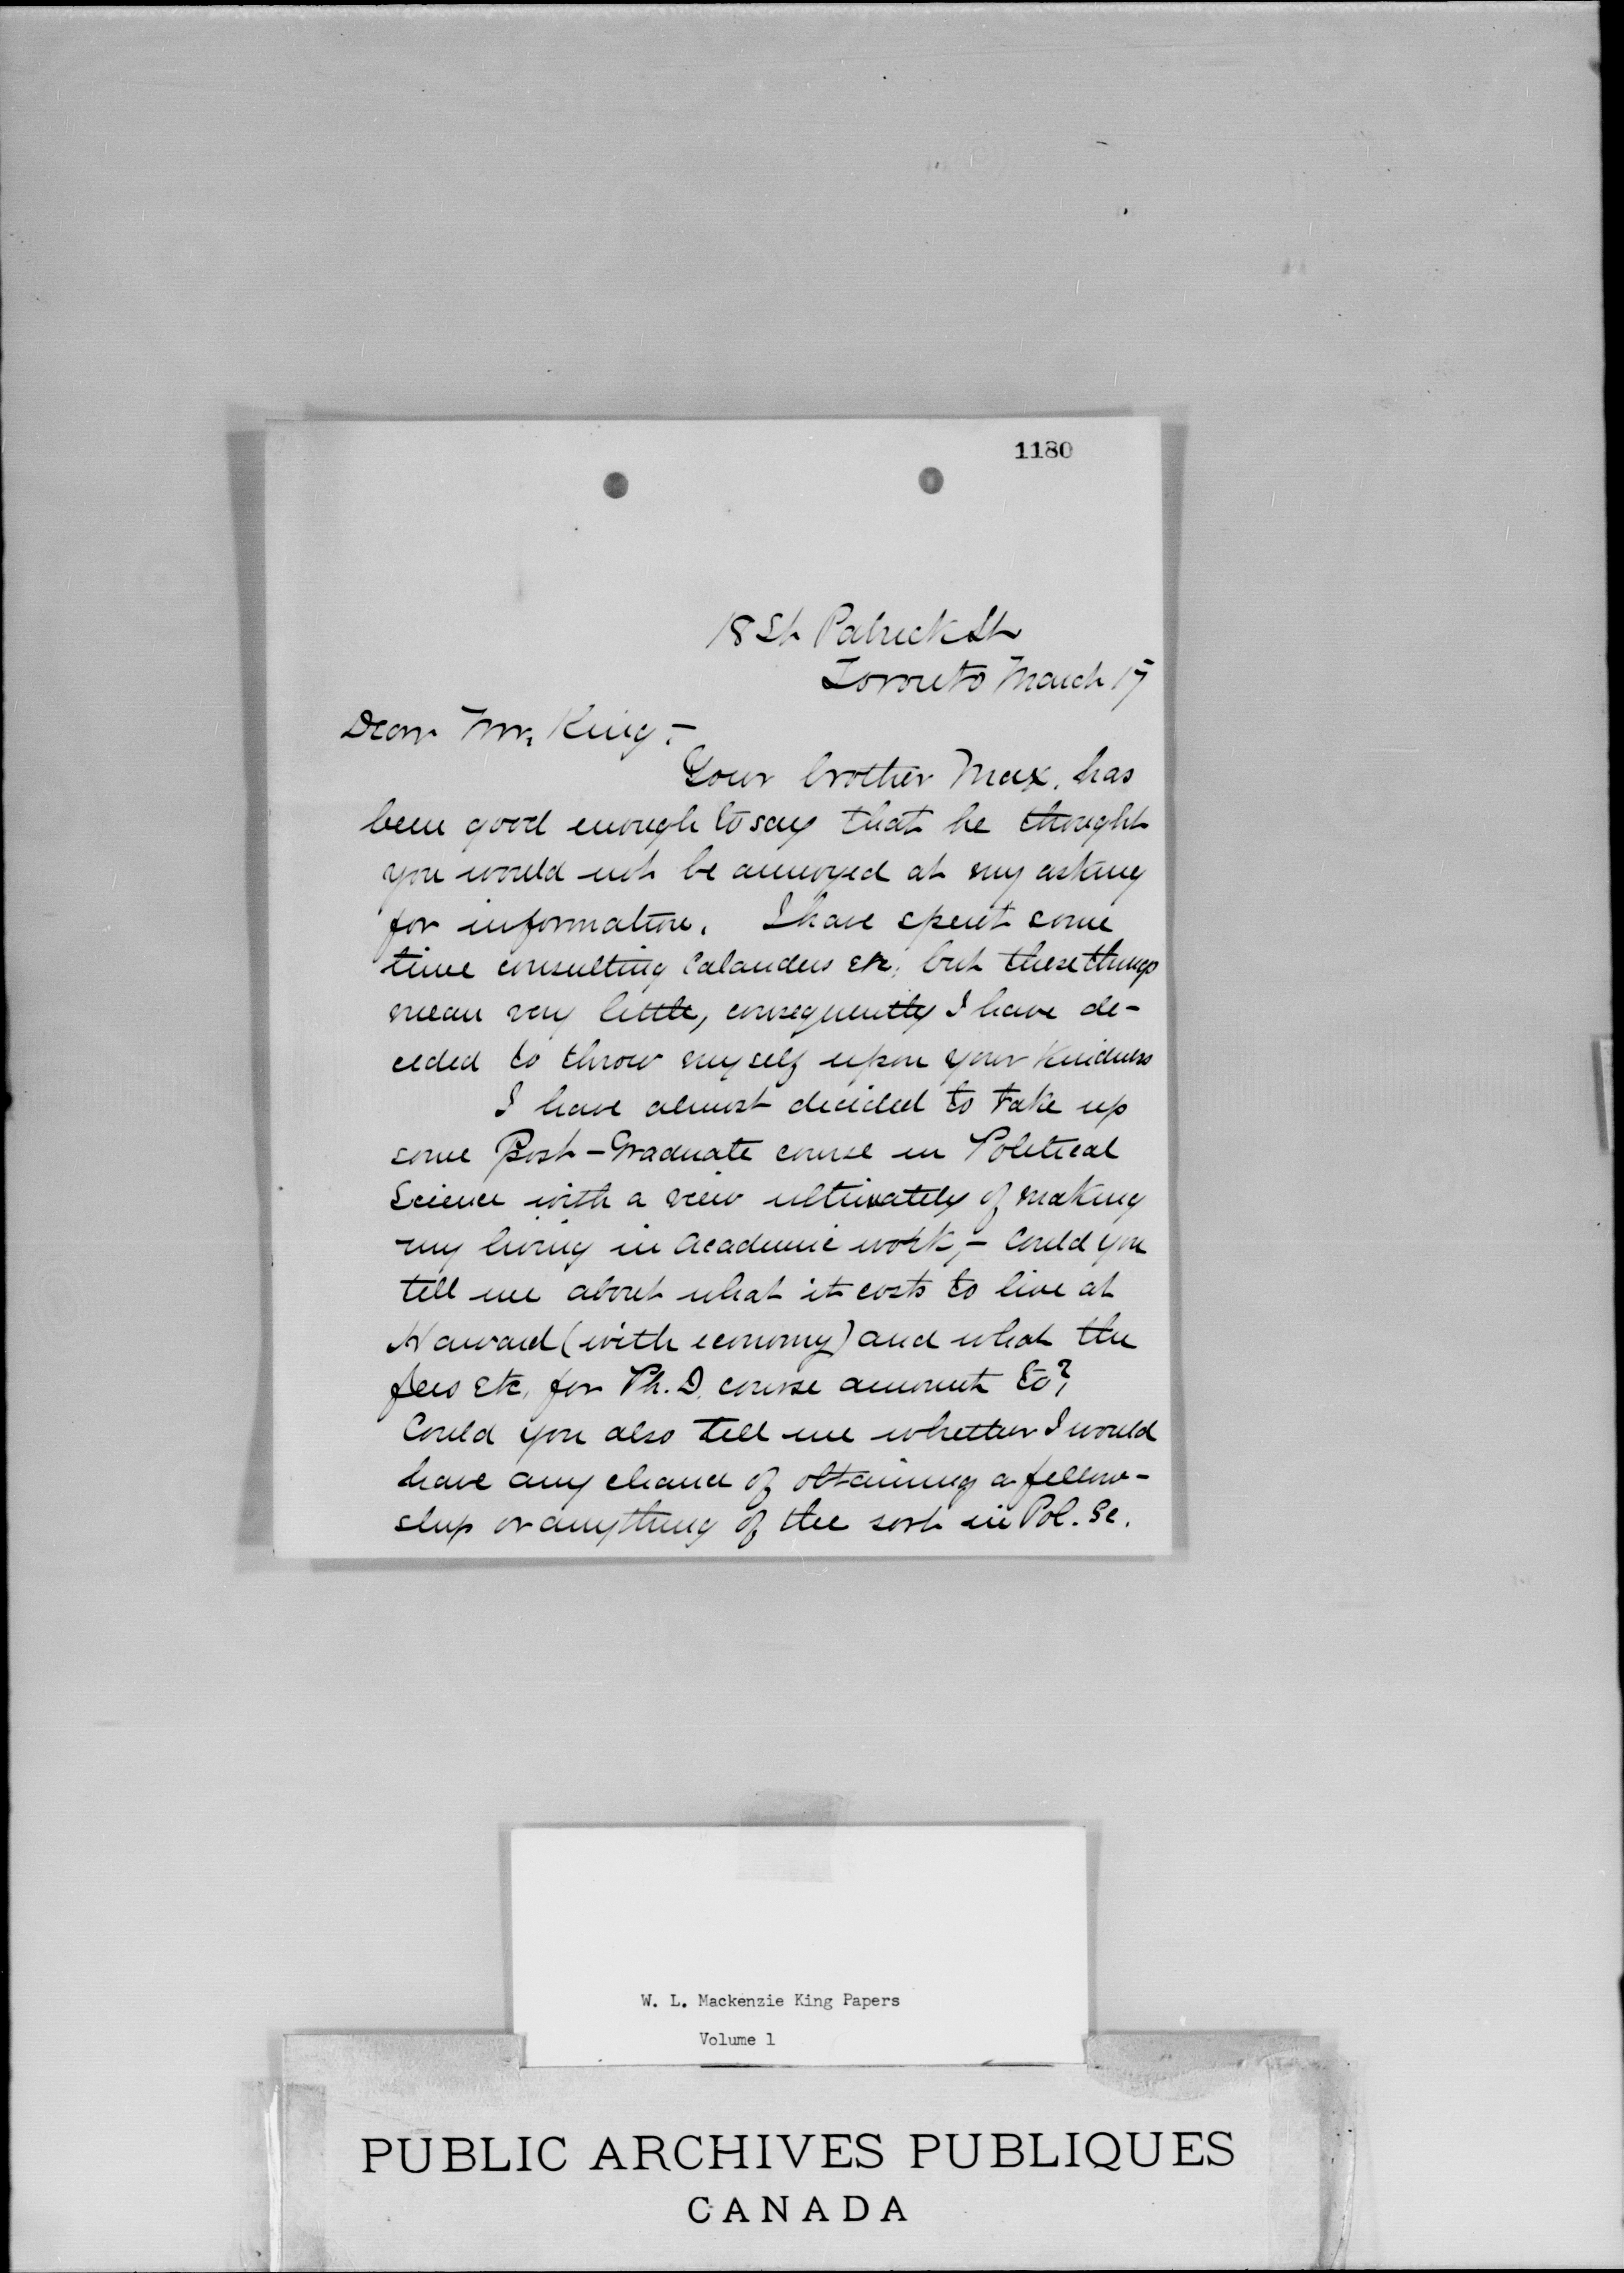 1180
18 St Patrick St
Toronto March 17
Dear Mr. King,-
Your brother Max. has
been good enough to say that he thought
you would not be annoyed at my asking
for information. I have spent some
time consulting Calanders etc, but these things
mean very little, consequently I have de-
cided to throw myself upon your kindness
I have almost decided to take up
some Post-Graduate course in Political
Science with a view ultimately of making
my living in academic work,- Could you
tell me about what it costs to live at
Harvard (with economy) and what the
fees etc, for Ph.D. course amount to?
Could you also tell me whether I would
have any chance of obtaining a fellow-
ship or anything of the sort in Pol. Sc.
W. L. Mackenzie King Papers
Volume 1
PUBLIC ARCHIVES PUBLIQUES
CANADA